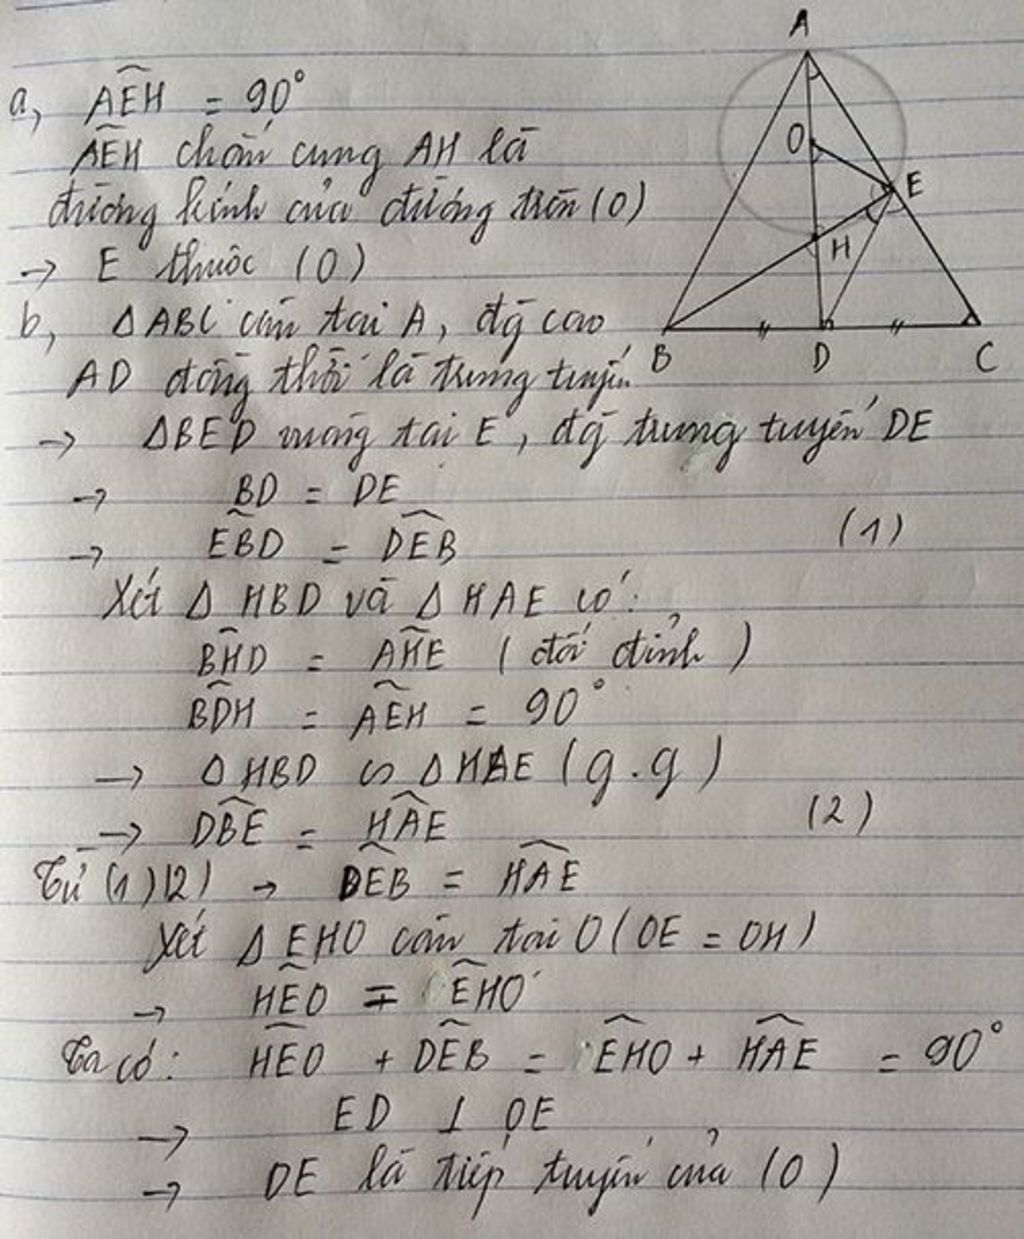 a, AEH = 90°
AEH chắn cung AH là
đường kính của đường tròn (O)
→ E thuộc (O)
b, ΔABC cân tại A, đg cao
AD đồng thời là trung tuyến
→ ΔBED vuông tại E, đg trung tuyến DE
→ BD = DE
→ EBD = DEB (1)
Xét Δ HBD và Δ HAE có:
BHD = AHE (đối đỉnh)
BDH = AEH = 90°
→ ΔHBD ∽ ΔHAE (g.g)
→ DBE = HAE (2)
Từ (1)(2) → DEB = HAE
Xét ΔEHO cân tại O (OE = OH)
→ HEO = EHO
Ta có: HEO + DEB = EHO + HAE = 90°
→ ED ⊥ OE
→ DE là tiếp tuyến của (O)
A
O
E
H
B
D
C